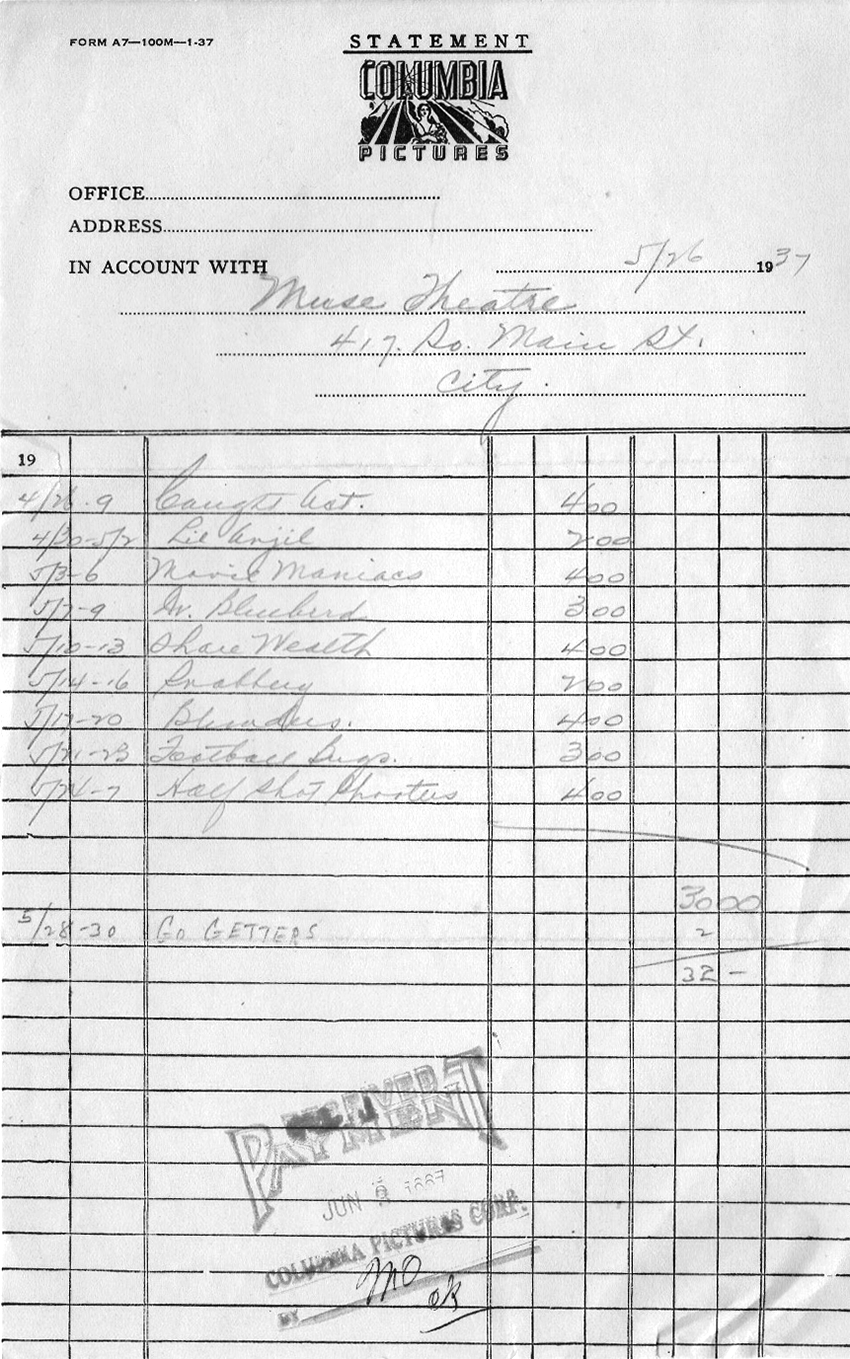 FORM A7—100M—1-37
STATEMENT
COLUMBIA
PICTURES
OFFICE
ADDRESS
IN ACCOUNT WITH 5/26 1937
Muse Theatre
417. So. Main St.
City.
19
4/26-9 Caught Act. 400
4/30-5/2 Lil Anjil 200
5/3-6 Movie Maniacs 400
5/7-9 Dr. Bluebird 300
5/10-13 Share Wealth 400
5/14-16 200
5/17-20 Blunders. 400
5/21-23 Football Bugs. 300
5/24-7 Half Shot Shooters 400
3000
5/28-30 GO GETTERS 2
32 -
RECEIVED
PAYMENT
JUN
COLUMBIA PICTURES CORP.
BY
OK